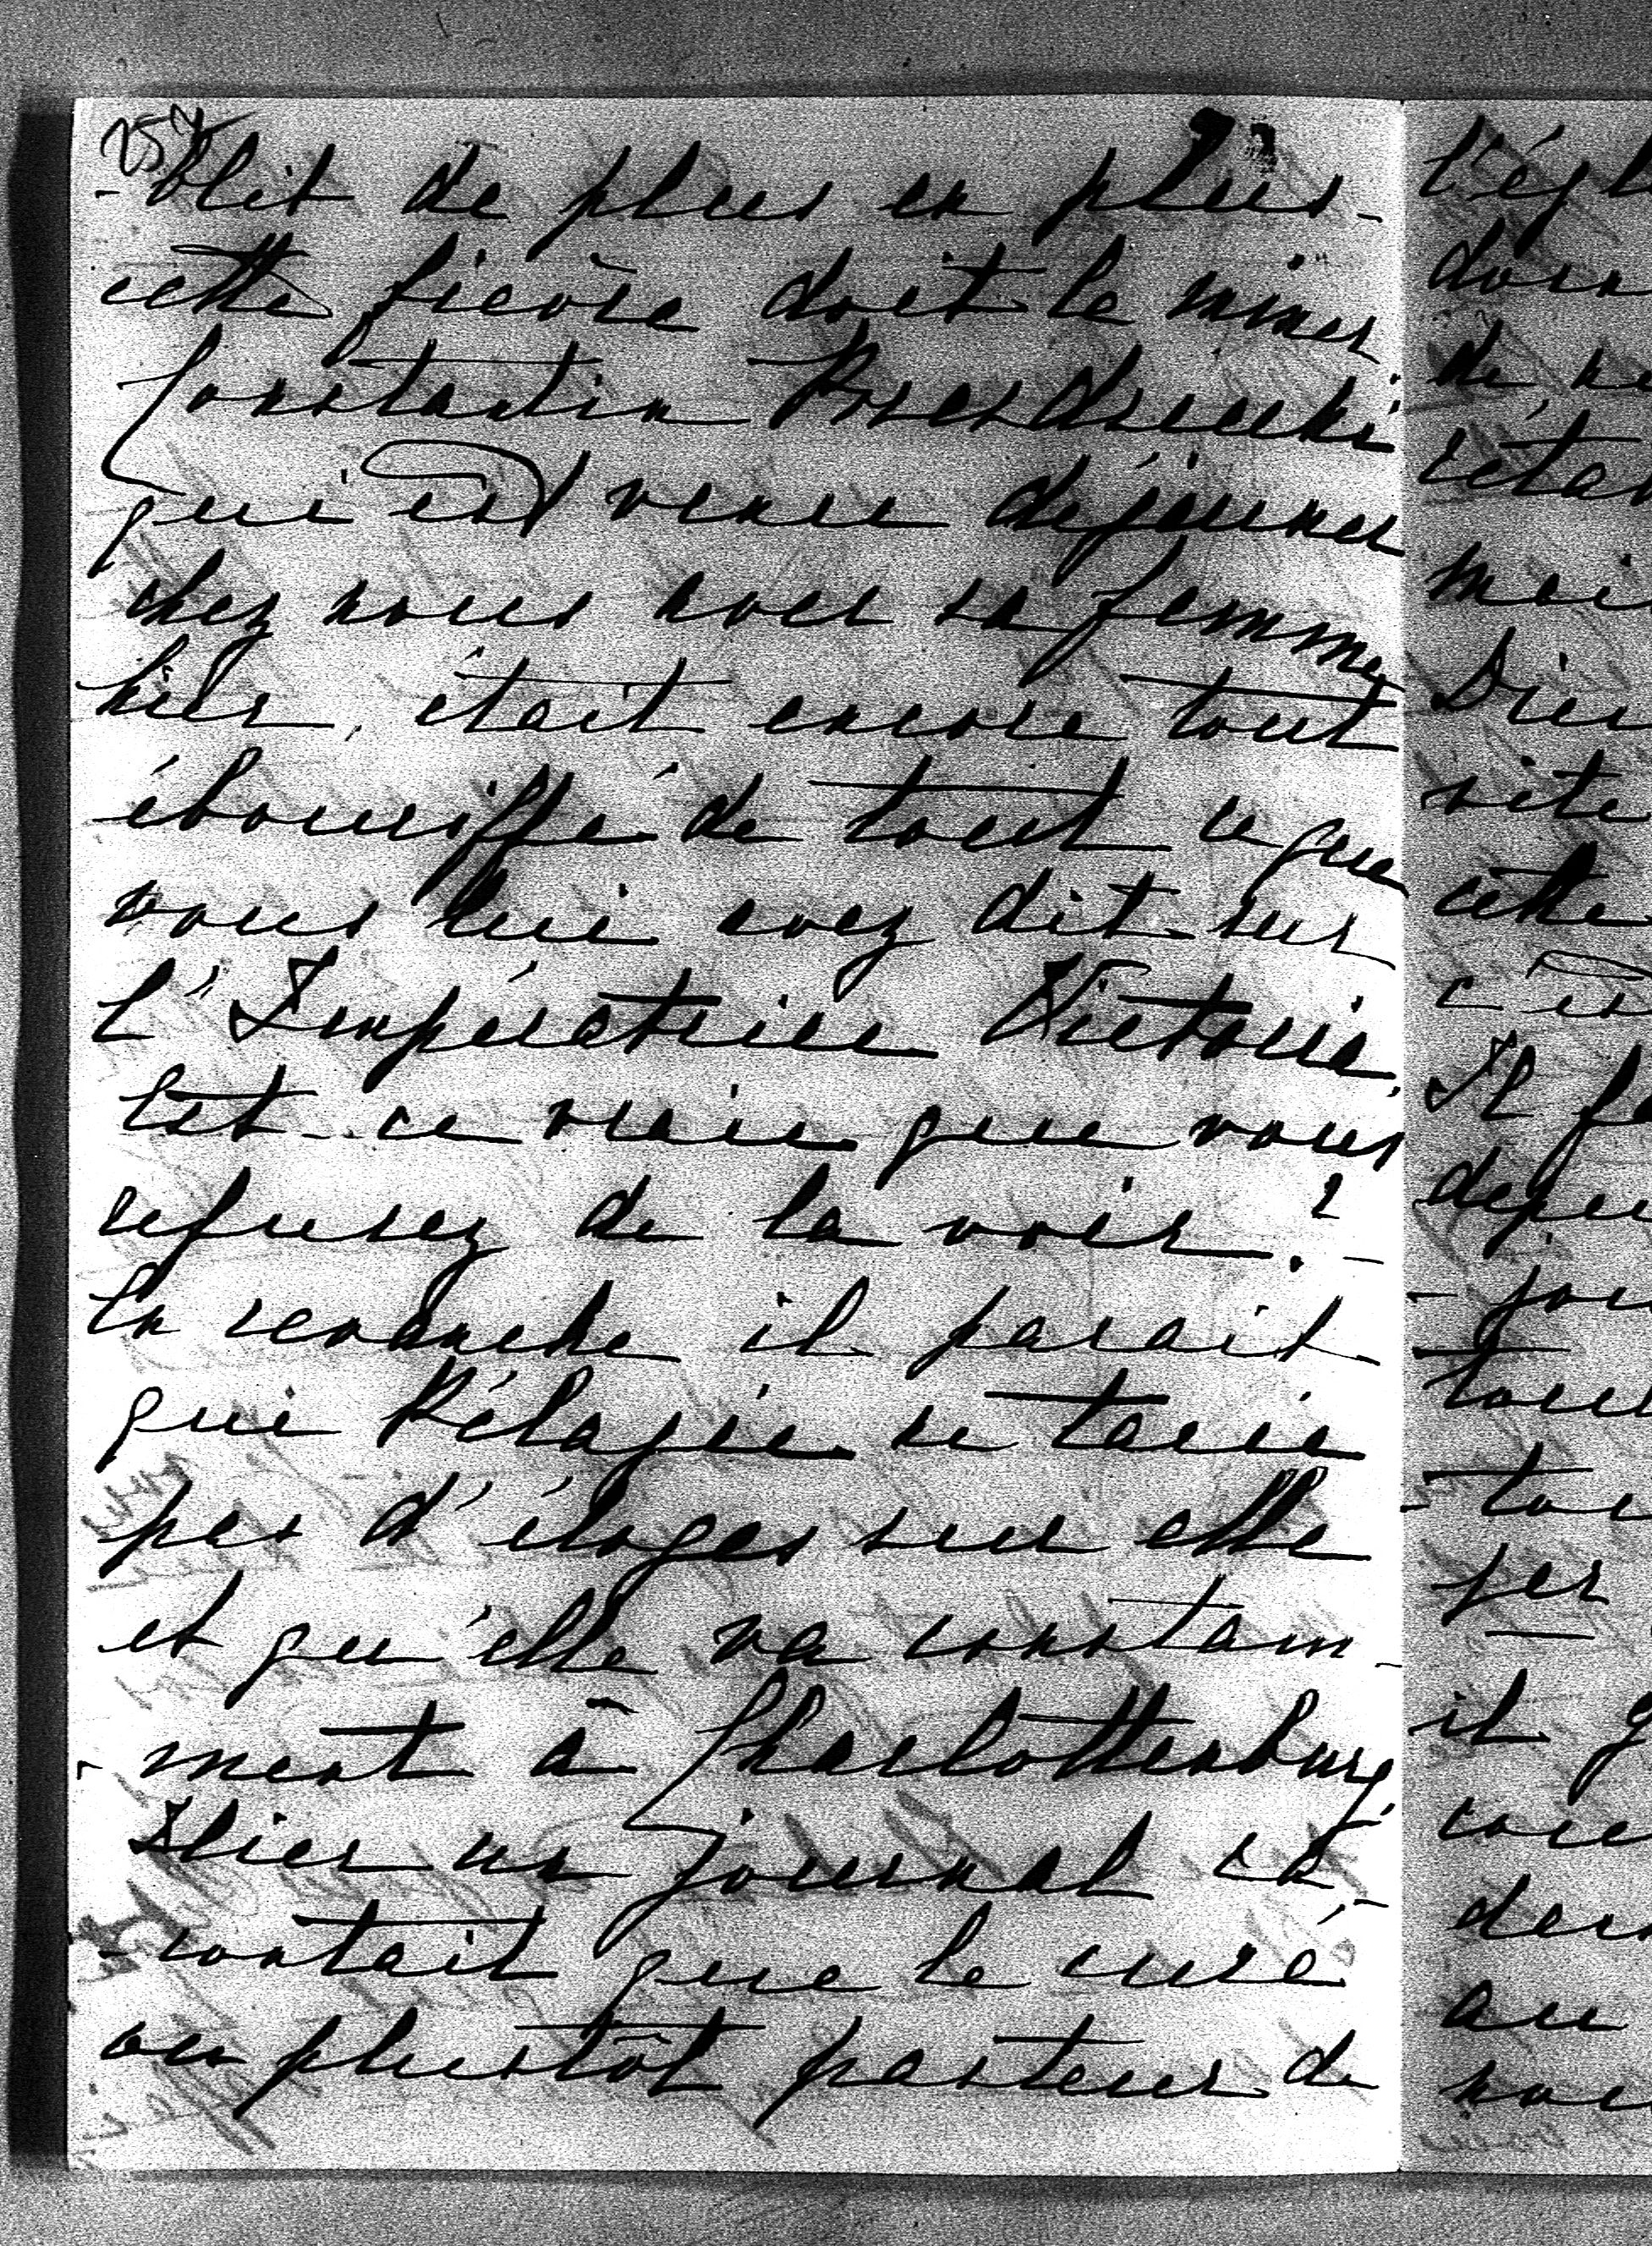 257
-blit de plus en plus -
cette fièvre doit le miner
Constantin
qui est venu déjeuner
chez nous avec sa femme
hier, était encore tout
ébouriffé de tout ce que
vous lui avez dit sur
l'Impératrice Victoria.
Est-ce vrai que vous
refusez de la voir? -
En revanche il parait
que Pélagie ne tarie
pas d'éloges sur elle
et qu'elle va constam-
-ment à Charlottenburg.
Hier un journal ra-
-contait que le curé
ou plustôt pasteur de
l'égl
dor
de
rétab
mai
Dieu
vite
cette
c'es
Il f
depu
- jou
tou
- tou
per
il
cou
der
au
nou